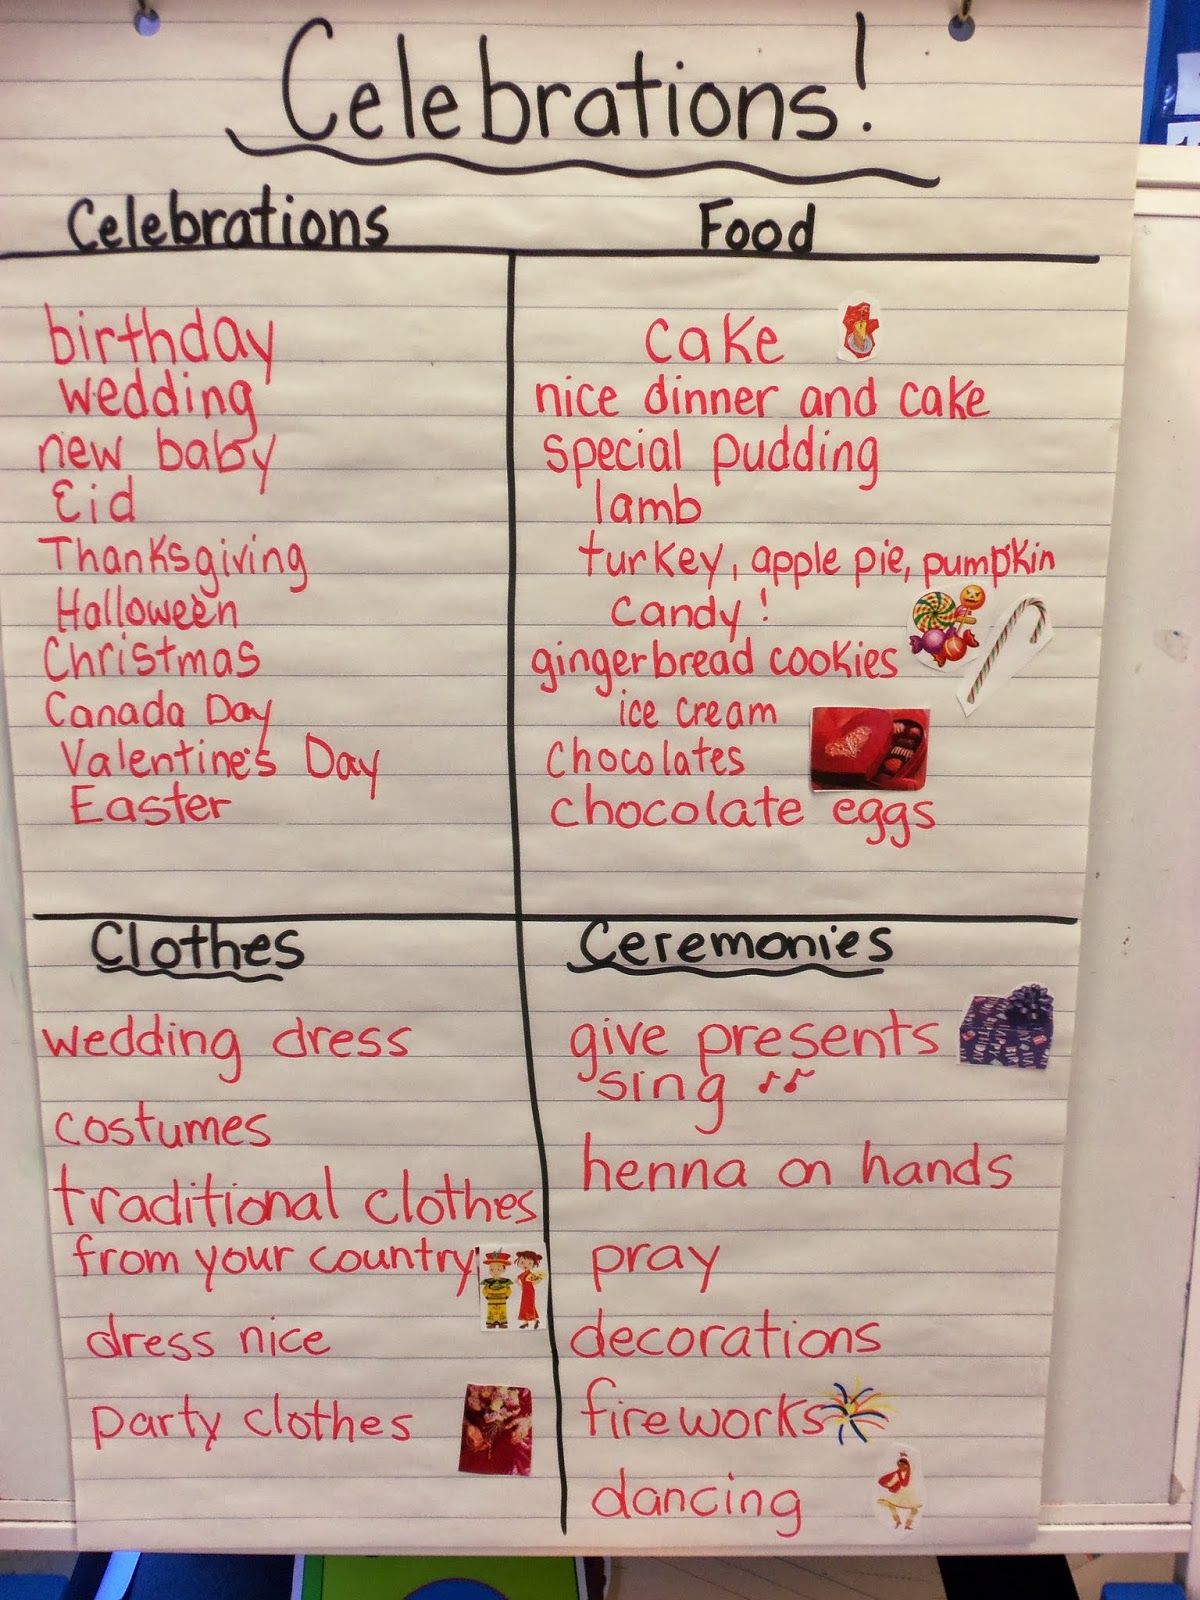 Celebrations!
Celebrations
birthday
wedding
new baby
Eid
Thanksgiving
Halloween
Christmas
Canada Day
Valentine's Day
Easter
Food
cake
nice dinner and cake
special pudding
lamb
turkey, apple pie, pumpkin
candy!
gingerbread cookies
ice cream
chocolates
chocolate eggs
Clothes
wedding dress
costumes
traditional clothes
from your country
dress nice
party clothes
Ceremonies
give presents
sing ♪♫
henna on hands
pray
decorations
fireworks
dancing